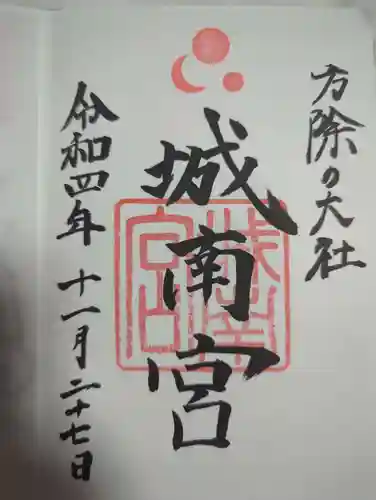 方除の大社
城南宮
令和四年十一月二十七日